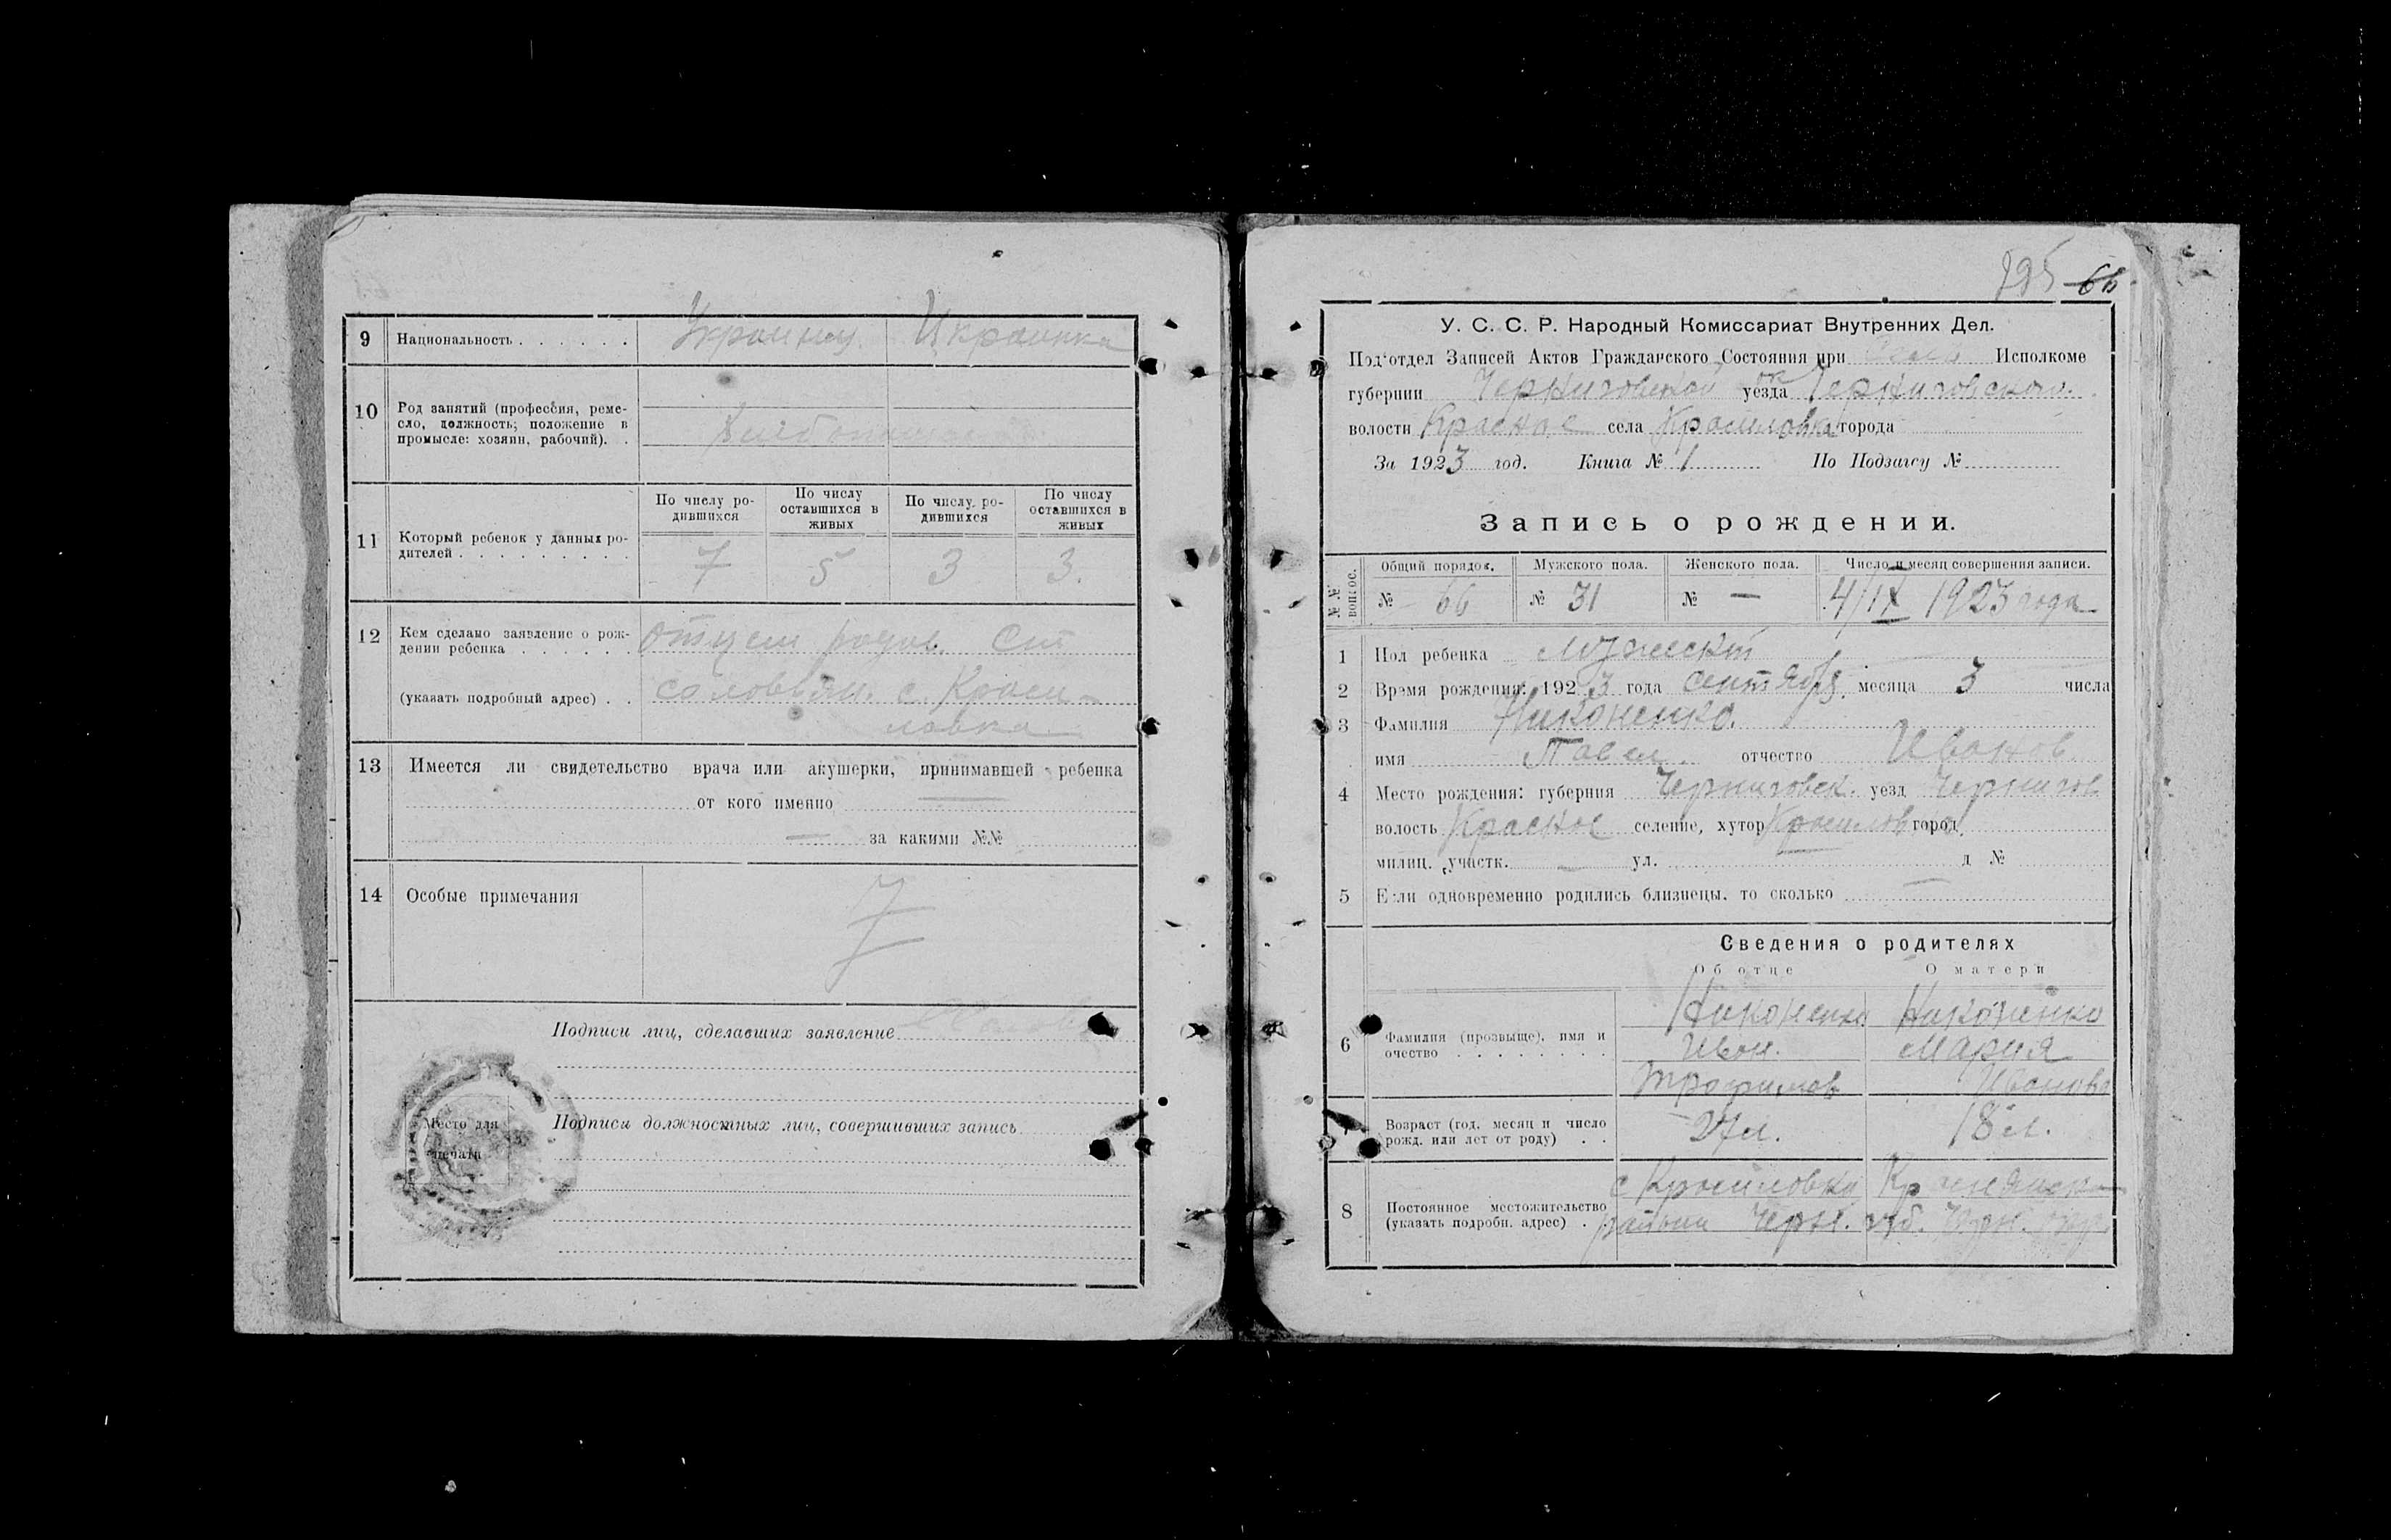 9 Национальность . . . . . . Украинец Украинка
10 Род занятий (профессия, реме-
сло, должность; положение в
промысле: хозяин, рабочий). .
11 Который ребенок у данных ро-
дителей . . . . . . . . .
По числу ро-
дившихся
По числу
оставшихся в
живых
По числу ро-
дившихся
По числу
оставшихся в
живых
7 5 3 3.
12 Кем сделано заявление о рож-
дении ребенка . . . . . . отцем
(указать подробный адрес) . . с. Краси-
ловка
13 Имеется ли свидетельство врача или акушерки, принимавшей ребенка
от кого именно —
— за какими №№
14 Особые примечания
Подписи лиц, сделавших заявление
Место для
печати
Подписи должностных лиц, совершивших запись
66
У. С. С. Р. Народный Комиссариат Внутренних Дел.
Подотдел Записей Актов Гражданского Состояния при Исполкоме
губернии Черниговской уезда ок Черниговского.
волости Красное села Красиловка города
За 1923 год. Книга № 1 По Подзагсу №
Запись о рождении.
№№ вопрос.
Общий порядок. Мужского пола. Женского пола. Число и месяц совершения записи.
№ 66 № 31 № — 4/IX 1923 года
1 Пол ребенка Мужеский
2 Время рождения: 1923 года сентябя месяца 3 числа
3 Фамилия Никоненко.
имя Павел отчество Иванов
4 Место рождения: губерния Черниговск. уезд Чернигов
волость Красное селение, хутор Красиловка город
милиц. участк. — ул. д №
5 Если одновременно родились близнецы, то сколько —
Сведения о родителях
Об отце О матери
6 Фамилия (прозвище), имя и
очество . . . . . . . .
Никоненко Никоненко
Иван. Мария
Трофимов Иванова
Возраст (год, месяц и число
рожд. или лет от роду) . .
27 л. 18 л.
8 Постоянное местожительство
(указать подробн. адрес) .
с Красиловка Краснянск
района Черн. губ.